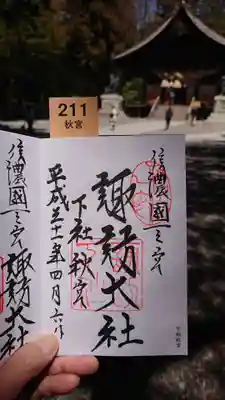 211
秋宮
信濃國一之宮
諏訪大社
下社秋宮
平成三十一年四月六日
信濃國一之宮
諏訪大社
下社秋宮